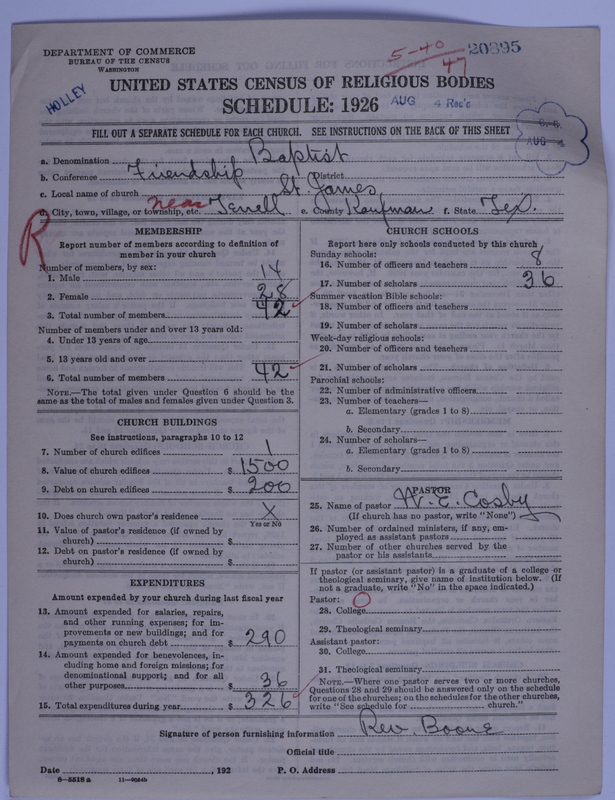 DEPARTMENT OF COMMERCE
BUREAU OF THE CENSUS
WASHINGTON
5-40
47
20895
UNITED STATES CENSUS OF RELIGIOUS BODIES
HOLLEY
SCHEDULE: 1926
AUG 4 Rec'd
FILL OUT A SEPARATE SCHEDULE FOR EACH CHURCH. SEE INSTRUCTIONS ON THE BACK OF THIS SHEET
AUG
a. Denomination Baptist
b. Conference Friendship District
c. Local name of church St. James
d. City, town, village, or township, etc. near Terrell e. County Kaufman f. State Tex.
R
MEMBERSHIP
Report number of members according to definition of
member in your church
Number of members, by sex:
1. Male 14
2. Female 28
3. Total number of members 42
Number of members under and over 13 years old:
4. Under 13 years of age
5. 13 years old and over
6. Total number of members 42
NOTE.—The total given under Question 6 should be
same as the total of males and females given under Question 3.
CHURCH BUILDINGS
See instructions, paragraphs 10 to 12
7. Number of church edifices 1
8. Value of church edifices $ 1500
9. Debt on church edifices $ 200
10. Does church own pastor's residence X
Yes or No
11. Value of pastor's residence (if owned by
church) $
12. Debt on pastor's residence (if owned by
church) $
EXPENDITURES
Amount expended by your church during last fiscal year
13. Amount expended for salaries, repairs,
and other running expenses; for im-
provements or new buildings; and for
payments on church debt $ 290
14. Amount expended for benevolences, in-
cluding home and foreign missions; for
denominational support; and for all
other purposes $ 36
15. Total expenditures during year $ 326
CHURCH SCHOOLS
Report here only schools conducted by this church
Sunday schools:
16. Number of officers and teachers 8
17. Number of scholars 36
Summer vacation Bible schools:
18. Number of officers and teachers
19. Number of scholars
Week-day religious schools:
20. Number of officers and teachers
21. Number of scholars
Parochial schools:
22. Number of administrative officers
23. Number of teachers—
a. Elementary (grades 1 to 8)
b. Secondary
24. Number of scholars—
a. Elementary (grades 1 to 8)
b. Secondary
PASTOR
25. Name of pastor W. E. Cosby
(If church has no pastor, write "None")
26. Number of ordained ministers, if any, em-
ployed as assistant pastors
27. Number of other churches served by the
pastor or his assistants
If pastor (or assistant pastor) is a graduate of a college or
theological seminary, give name of institution below. (If
not a graduate, write "No" in the space indicated.)
Pastor: O
28. College
29. Theological seminary
Assistant pastor:
30. College
31. Theological seminary
NOTE.—Where one pastor serves two or more churches,
Questions 28 and 29 should be answered only on the schedule
for one of the churches; on the schedules for the other churches,
write "See schedule for church."
Signature of person furnishing information Rev. Boone
Official title
Date , 192 P. O. Address
8-5518 a 11-9064b